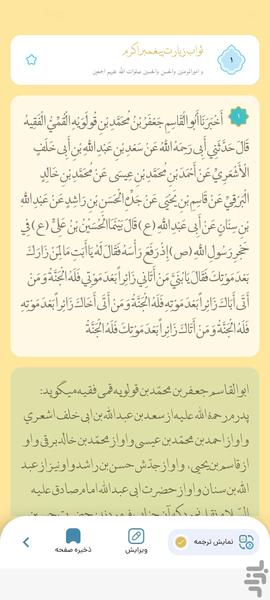 ثواب زیارت پیغمبر اکرم
و امیرالمومنین والحسن والحسین صلوات الله علیهم اجمعین
۱
۱
أَخْبَرَنَا أَبُو الْقَاسِمِ جَعْفَرُ بْنُ مُحَمَّدِ بْنِ قُولَوَيْهِ الْقُمِّيُّ الْفَقِيهُ
قَالَ حَدَّثَنِي أَبِي رَحِمَهُ اللهُ عَنْ سَعْدِ بْنِ عَبْدِ اللهِ بْنِ أَبِي خَلَفٍ
الْأَشْعَرِيِّ عَنْ أَحْمَدَ بْنِ مُحَمَّدِ بْنِ عِيسَى عَنْ مُحَمَّدِ بْنِ خَالِدٍ
الْبَرْقِيِّ عَنْ قَاسِمِ بْنِ يَحْيَى عَنْ جَدِّهِ الْحَسَنِ بْنِ رَاشِدٍ عَنْ عَبْدِ اللهِ
بْنِ سِنَانٍ عَنْ أَبِي عَبْدِ اللهِ (ع) قَالَ بَيْنَمَا الْحُسَيْنُ بْنُ عَلِيٍّ (ع) فِي
حَجْرِ رَسُولِ اللهِ (ص) إِذْ رَفَعَ رَأْسَهُ فَقَالَ لَهُ يَا أَبَتِ مَا لِمَنْ زَارَكَ
بَعْدَ مَوْتِكَ فَقَالَ يَا بُنَيَّ مَنْ أَتَانِي زَائِراً بَعْدَ مَوْتِي فَلَهُ الْجَنَّةُ وَ مَنْ
أَتَى أَبَاكَ زَائِراً بَعْدَ مَوْتِهِ فَلَهُ الْجَنَّةُ وَ مَنْ أَتَى أَخَاكَ زَائِراً بَعْدَ مَوْتِهِ
فَلَهُ الْجَنَّةُ وَ مَنْ أَتَاكَ زَائِراً بَعْدَ مَوْتِكَ فَلَهُ الْجَنَّةُ
ابوالقاسم جعفر بن محمّد بن قولویه قمی فقیه میگوید:
پدرم رحمة الله علیه از سعد بن عبدالله بن ابی خلف اشعری
و او از احمد بن محمّد بن عیسی و او از محمّد بن خالد برقی و او
از قاسم بن یحیی، و او از جدّش حسن بن راشد و او نیز از عبد
الله بن سنان و او از حضرت ابی عبد الله امام صادق علیه
نمایش ترجمه
ویرایش
ذخیره صفحه
بازار